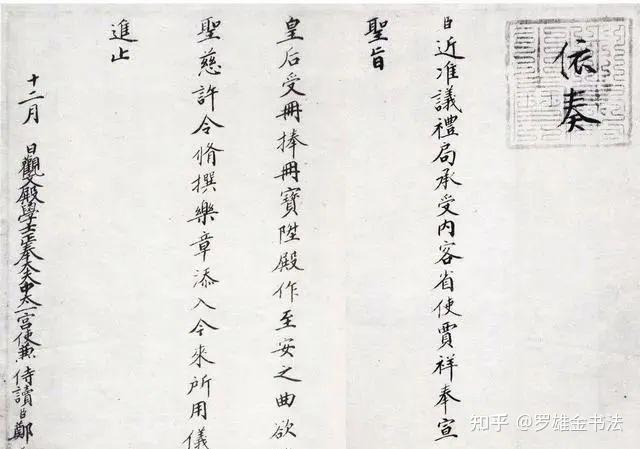 依奏
臣近准議禮局承受内客省使賈祥奉宣
聖旨
皇后受冊捧冊寶陞殿作至安之曲欲
聖慈許令脩撰樂章添入今來所用儀
進止
十二月 日觀文殿學士中太一宮使兼侍讀臣鄭
知乎 @罗雄金书法